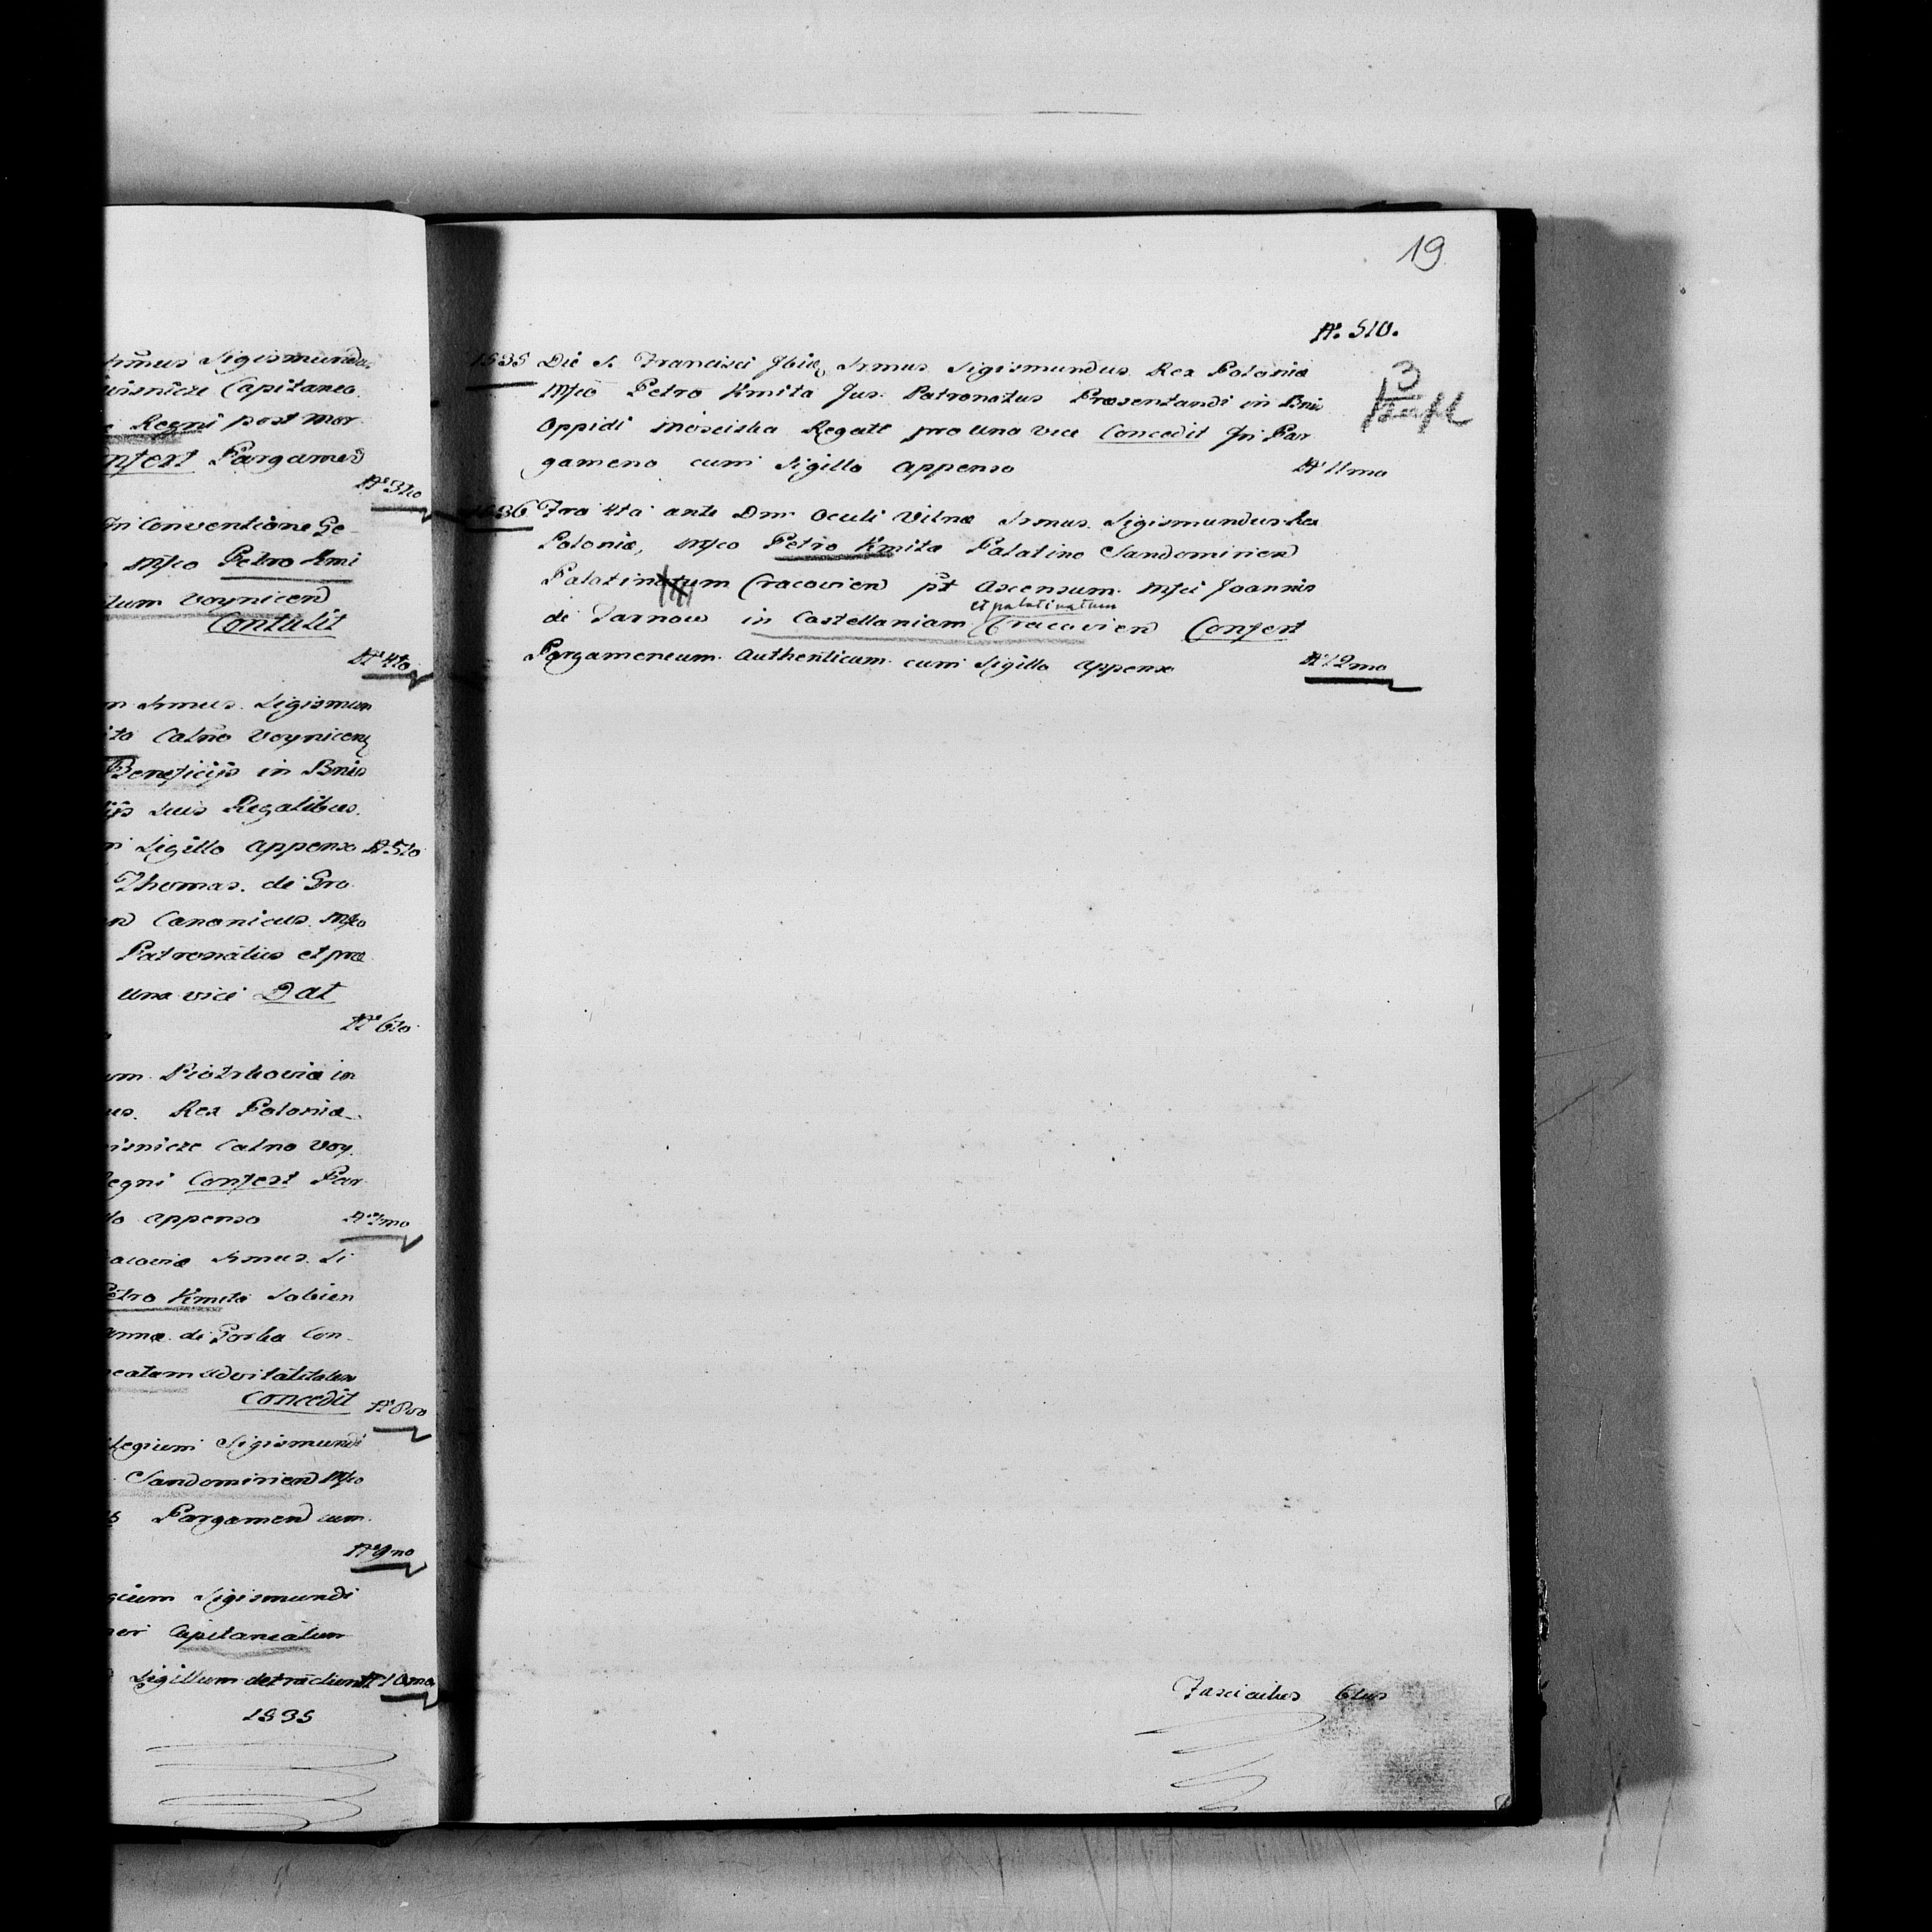 Srmus Sigismundus
Wisnicze Capitaneo
Regni post mor
Confert Pargamen
Nº 3tio
In Conventione Ge-
Mfco Petro Kmi
Voynicen
Contulit
Nº 4to
Srmus. Sigismun
Calno Voynicen
Beneficijs in Bnis
suis Regalibus.
Sigillo appenso Nº 5to
Thomas. de Gro
Canonicus. Mfco
Patronatus et præ
una vice Dat
Nº 6to
Piotrkoviæ in
Rex Poloniæ
Wisnicze Calno Voy.
Regni Confert Par
appenso Nº 7mo
Srmus. Si
Petro Kmita Sabien
de Gorka Con-
advitalitatem
Concedit Nº 8vo
Sigismundi
Sandomirien Mfco
Pargamen cum
Nº 9no
Sigismundi
Capitaneatum
Sigillum detractum Nº 10mo
1535
19
Nº. 510.
1535 Die S. Francisci Srmus Sigismundus Rex Poloniæ
Mfco Petro Kmita Jus Patronatus Præsentandi in Bnis
Oppidi Mosciska Regale pro una vice Concedit In Par
gameno cum Sigillo appenso Nº 11mo
3
1536 Fra 4ta ante Dnm Oculi Vilnæ Srmus. Sigismundus Rex
Poloniæ, Mfco Petro Kmita Palatino Sandomirien
Palatinatum Cracovien pt ascensum Mfci Joannis
et palatinatum
de Tarnow in Castellaniam Cracovien Confert
Pargameneum Authenticum cum Sigillo appenso Nº 12mo
Fasciculus 6tus